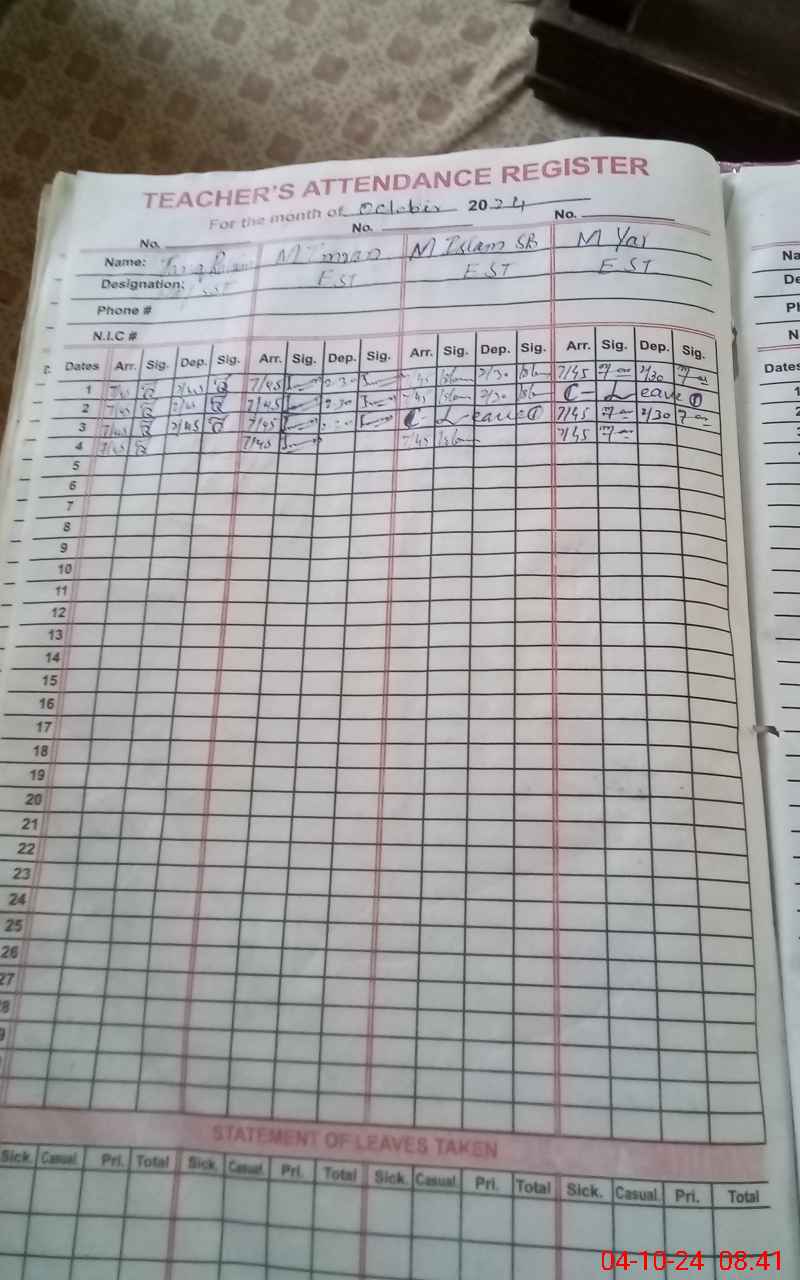 TEACHER'S ATTENDANCE REGISTER
For the month of October 2024
No. No. No.
Name: M Iman M Islam SB M Yar
Designation: EST EST EST
Phone #
N.I.C #
Dates Arr. Sig. Dep. Sig. Arr. Sig. Dep. Sig. Arr. Sig. Dep. Sig. Arr. Sig. Dep. Sig.
1 7/45 2/45 7/45 2:30 7/45 Islam 2/30 Islam 7/45 2/30
2 7/45 2/45 7/45 2:30 7/45 Islam 2/30 Islam C - Leave ①
3 7/45 2/45 7/45 C - Leave ① 7/45 2/30
4 7/45 7/45 7/45 Islam 7/45
5
6
7
8
9
10
11
12
13
14
15
16
17
18
19
20
21
22
23
24
25
26
27
8
9
STATEMENT OF LEAVES TAKEN
Sick. Casual. Pri. Total Sick. Casual. Pri. Total Sick. Casual. Pri. Total Sick. Casual. Pri. Total
Na
De
Ph
N.
Dates
1
2
3
04-10-24 08.41